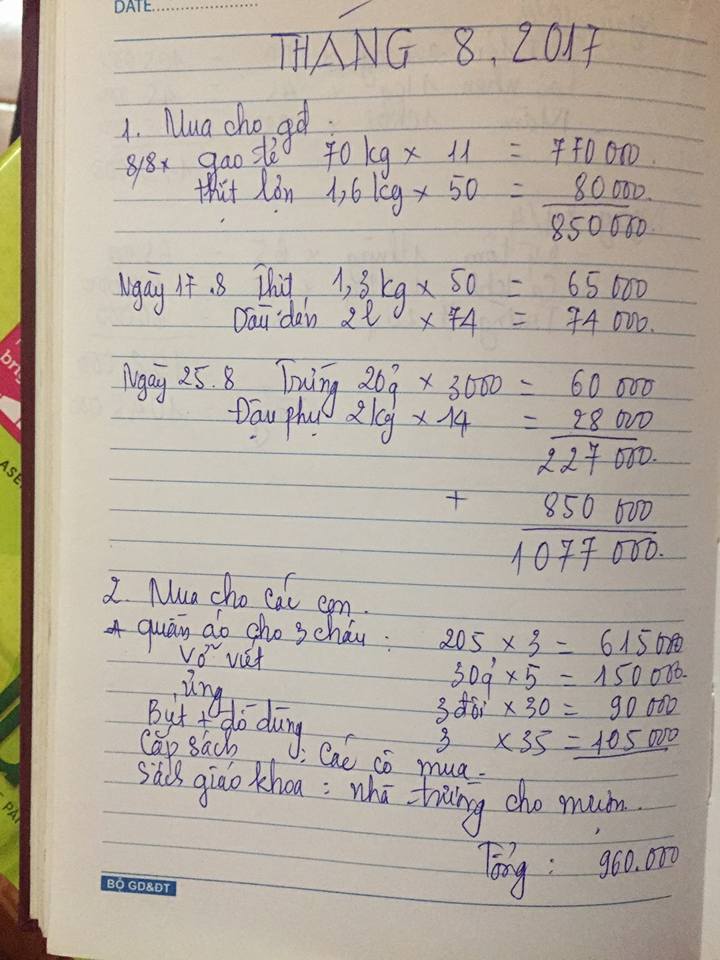 DATE
THÁNG 8.2017
1. Mua cho gđ :
8/8 x gạo tẻ 70 kg x 11 = 770 000.
thịt lợn 1,6 kg x 50 = 80 000.
850 000.
Ngày 17.8 Thịt 1,3 kg x 50 = 65 000
Dầu dán 2l x 74 = 74 000.
Ngày 25.8 Trứng 20q x 3000 = 60 000
Đậu phụ 2 kg x 14 = 28 000
227 000.
+ 850 000
1 077 000.
2. Mua cho các con.
quần áo cho 3 cháu : 205 x 3 = 615 000
Vở viết 30q x 5 = 150 000.
ủng 3 đôi x 30 = 90 000
Bút + đồ dùng 3 x 35 = 105 000
Cặp sách : Các cô mua.
Sách giáo khoa : nhà trường cho mượn.
Tổng : 960.000
BỘ GD&ĐT